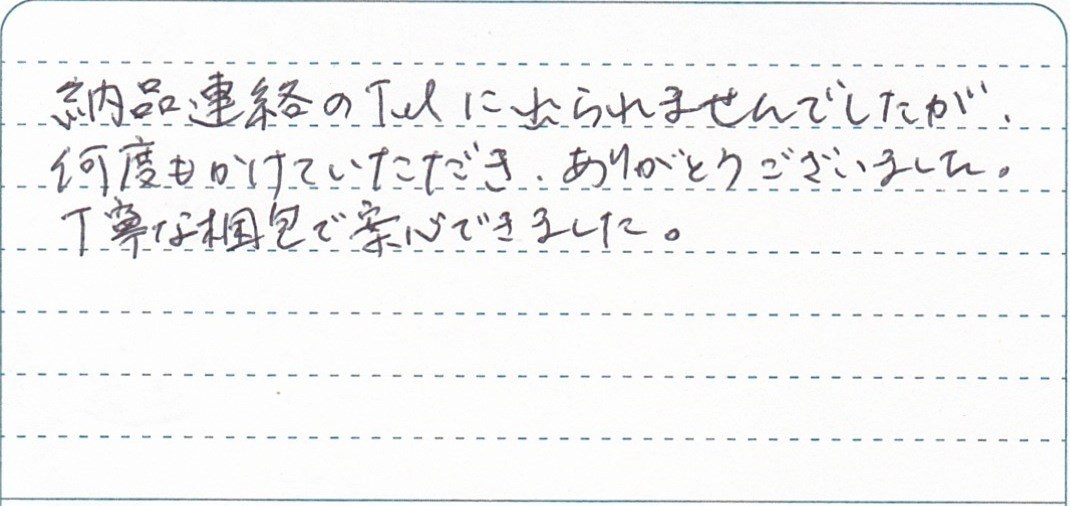 納品連絡のTelに出られませんでしたが、
何度もかけていただき、ありがとうございました。
丁寧な梱包で安心できました。